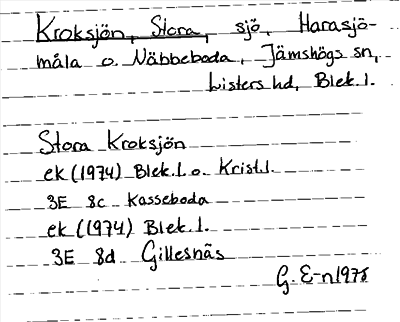 Kroksjön, Stora, sjö, Harasjö-
måla o. Näbbeboda, Jämshögs sn,
Listers hd, Blek. l.
Stora Kroksjön
ek (1974) Blek. l. o. Krist. l.
3E 8c Kasseboda
ek (1974) Blek. l.
3E 8d Gillesnäs
G. E-n